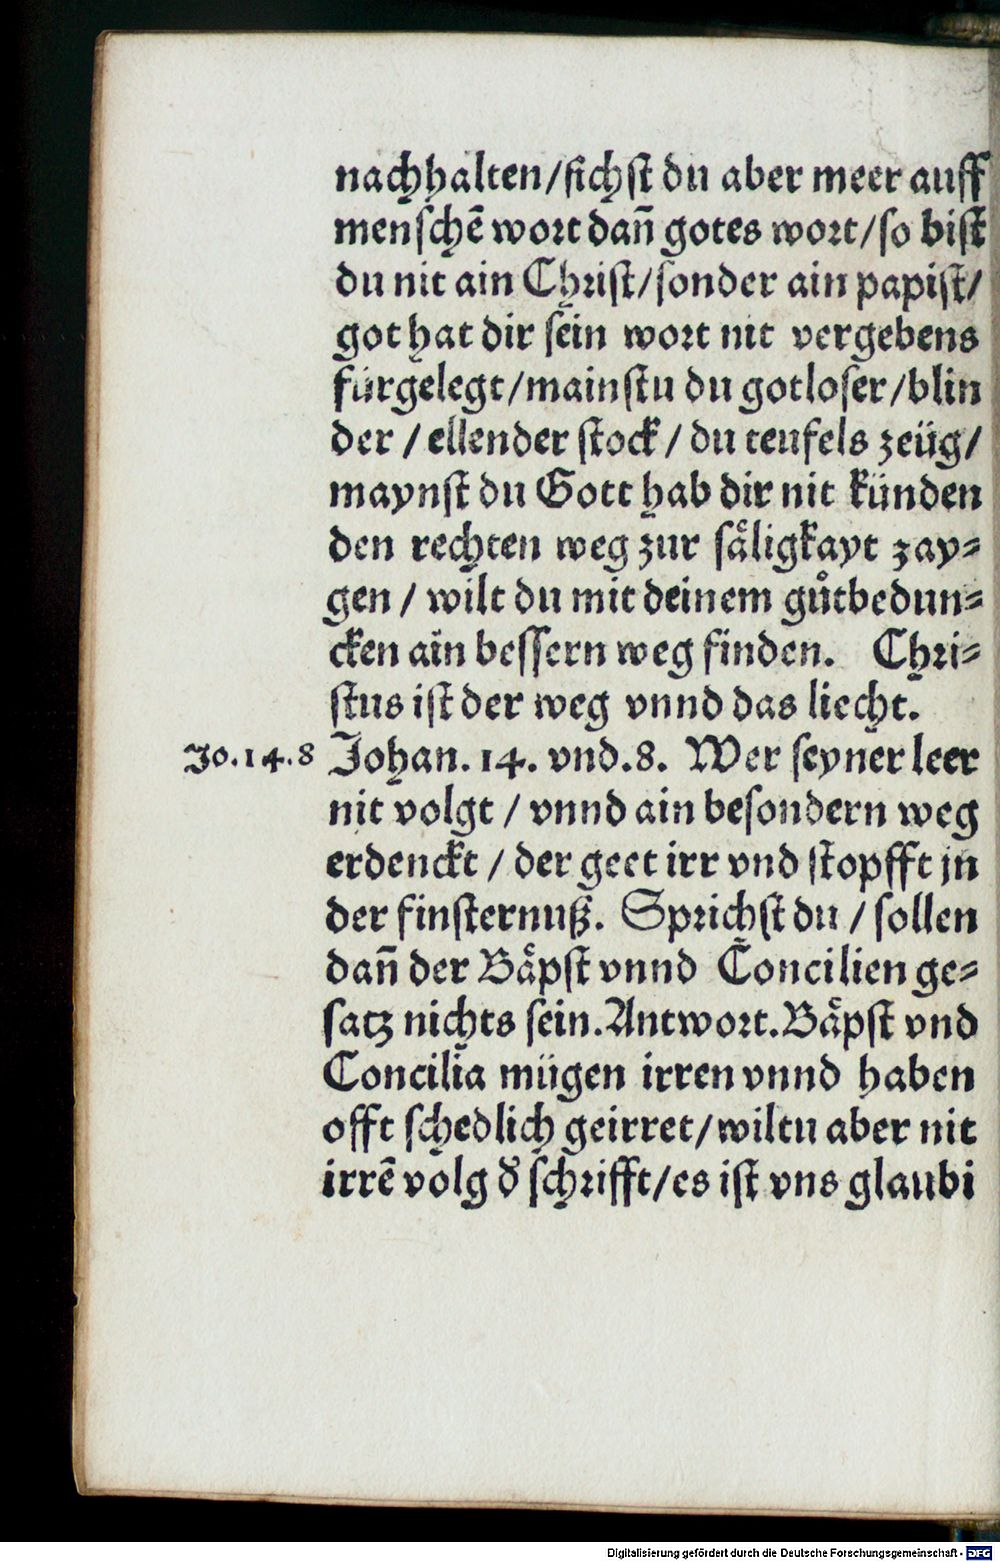 nachhalten/sichst du aber meer auff
menschē wort dañ gotes wort/so bist
du nit ain Christ/sonder ain papist/
got hat dir sein wort nit vergebens
fürgelegt/mainstu du gotloser/blin
der / ellender stock / du teufels zeüg/
maynst du Gott hab dir nit künden
den rechten weg zur såligkayt zay⸗
gen / wilt du mit deinem gůtbedun⸗
cken ain bessern weg finden. Chri⸗
stus ist der weg vnnd das liecht.
Jo.14.8 Johan. 14. vnd.8. Wer seyner leer
nit volgt / vnnd ain besondern weg
erdenckt / der geet irr vnd stopfft jn
der finsternuß. Sprichst du / sollen
dañ der Båpst vnnd Concilien ge⸗
satz nichts sein.Antwort.Båpst vnd
Concilia mügen irren vnnd haben
offt schedlich geirret/wiltu aber nit
irrē volg d̓ schrifft/es ist vns glaubi
Digitalisierung gefördert durch die Deutsche Forschungsgemeinschaft - DFG